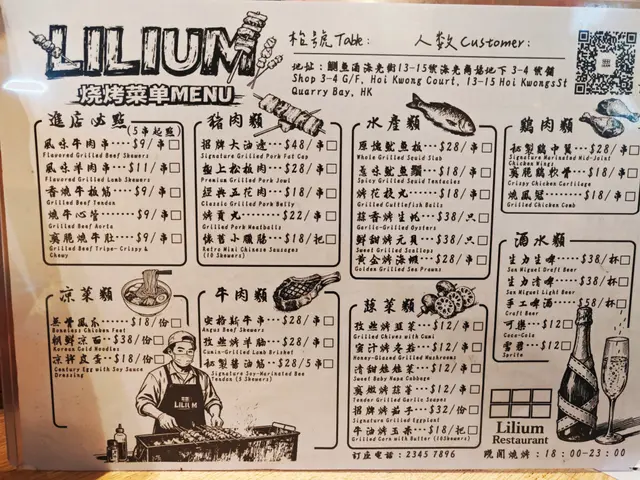 LILIUM
烧烤菜单MENU
枱號 Table: 人数 Customer:
地址: 鰂魚涌海光街13-15號海光商場地下 3-4 號舖
Shop 3-4 G/F, Hoi Kwong Court, 13-15 Hoi KwongsSt
Quarry Bay, HK
進店必點
(5串起點)
風味牛肉串···$9/串
Flavored Grilled Beef Skewers
風味羊肉串···$11/串
Flavored Grilled Lamb Skewers
香燒牛板筋···$9/串
Grilled Beef Tendon
燒牛心管···$9/串
Grilled Beef Aorta
脆燒牛肚···$9/串
Grilled Beef Tripe- Crispy & Chewy
豬肉類
招牌大油邊···$48/串
Signature Grilled Pork Fat Cap
極上松板肉···$28/串
Premium Grilled Pork Jowl
經典五花肉···$18/串
Classic Grilled Pork Belly
烤貢丸···$22/串
Grilled Pork Meatballs
懷舊小臘腸···$18/把
Retro Mini Chinese Sausages
(10 Skewers)
水產類
原燒魷魚板···$28/串
Whole Grilled Squid Slab
魷魚鬚···$18/串
Spicy Grilled Squid Tentacles
烤花枝丸···$18/串
Grilled Cuttlefish Balls
蒜香烤生蚝···$38/只
Garlic-Grilled Oysters
鮮甜烤元貝···$38/只
Sweet Grilled Scallops
黃金烤海蝦···$28/串
Golden Grilled Sea Prawns
鷄肉類
秘製鷄中翼···$28/串
Signature Marinated Mid-Joint
Chicken Wings
脆鷄軟骨···$18/串
Crispy Chicken Cartilage
燒鳳冠···$18/串
Grilled Chicken Comb
酒水類
生力生啤···$38/杯
San Miguel Draft Beer
生力清啤···$38/杯
San Miguel Light Beer
手工啤酒···$58/杯
Craft Beer
可樂···$12
Coca-Cola
雪碧···$12
Sprite
涼菜類
無骨鳳爪···$18/份
Boneless Chicken Feet
朝鮮涼面···$38/份
Korean Cold Noodles
涼拌皮蛋···$18/份
Century Egg with Soy Sauce
Dressing
牛肉類
安格斯牛串···$28/串
Angus Beef Skewers
孜然烤羊腩···$28/串
Cumin-Grilled Lamb Brisket
秘製醬油筋···$28/5串
Signature Soy-Marinated Bee
Tendon (5 Skewers)
蔬菜類
孜然烤韭菜···$12/串
Grilled Chives with Cumi
蜜汁烤冬菇···$12/串
Honey-Glazed Grilled Mushrooms
清甜娃娃菜···$12/串
Sweet Baby Napa Cabbage
嫩烤蒜苔···$12/串
Tender Grilled Garlic Scapes
招牌烤茄子···$32/份
Signature Grilled Eggplant
牛油烤玉米···$18/把
Grilled Corn with Butter (10Skewers)
LILIUM
Lilium
Restaurant
訂座電話: 2345 7896
晚間燒烤: 18:00-23:00